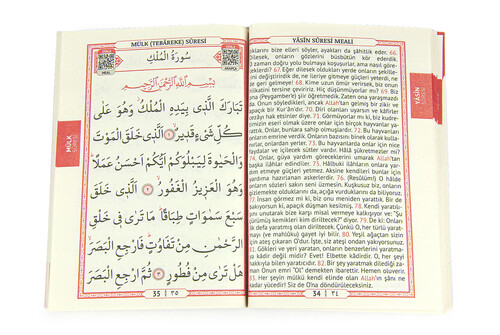 MÜLK (TEBÂREKE) SÛRESİ
سُورَةُ الْمُلْكِ
بِسْمِ اللّٰهِ الرَّحْمٰنِ الرَّحِيمِ
تَبَارَكَ الَّذِى بِيَدِهِ الْمُلْكُ وَهُوَ عَلٰى
كُلِّ شَىْءٍ قَدِيرٌ ۝ اَلَّذِى خَلَقَ الْمَوْتَ
وَالْحَيٰوةَ لِيَبْلُوَكُمْ اَيُّكُمْ اَحْسَنُ عَمَلًا
وَهُوَ الْعَزِيزُ الْغَفُورُ ۝ اَلَّذِى خَلَقَ
سَبْعَ سَمٰوَاتٍ طِبَاقًا مَا تَرٰى فِى خَلْقِ
الرَّحْمٰنِ مِنْ تَفَاوُتٍ فَارْجِعِ الْبَصَرَ
هَلْ تَرٰى مِنْ فُطُورٍ ۝ ثُمَّ ارْجِعِ الْبَصَرَ
35 ٣٥
MÜLK
SÛRESİ
YÂSÎN SÛRESİ MEALİ
bize elleri söyler, ayakları da şâhitlik eder. 66.
O zaman doğru yolu bulmaya koşuşurlar, ama nasıl göre-
67. Eğer dilesek oldukları yerde onların şekille-
rini değiştirirdik de, ne ileriye gitmeye güçleri yeterdi, ne
68. Kime uzun ömür verirsek, biz onun
tersine çeviririz. Hiç düşünmüyorlar mı? 69. Biz
(Peygamber'e) şiir öğretmedik. Zaten ona yaraşmazdı
Onun söyledikleri, ancak Allah'tan gelmiş bir zikir ve
apaçık bir Kur'ân'dır. 70. Diri olanları uyarsın ve kâfirler
azâbı hak etsinler diye. 71. Görmüyorlar mı ki, biz kud-
eseri olmak üzere onlar için birçok hayvanlar ya-
rattık. Onlar, bunlara sahip olmuşlardır. 72. Bu hayvanları
onların emrine verdik. Onlardan bir kısmı binekleridir,
yerler. 73. Bu hayvanlarda onlar için nice
faydalar ve içilecek sütler vardır. Hâlâ şükretmezler mi?
74. Onlar, güya yardım göreceklerini umarak Allah'tan
başka ilahlar edindiler. 75. Hâlbuki ilahların onlara yar-
dım etmeye güçleri yetmez. Aksine kendileri bunlar için
yardıma hazırlanan askerlerdir. 76. (Resûlüm!) O hâlde
onların sözleri sakın seni üzmesin. Kuşkusuz biz, onların
gizlemekte olduklarını da, açığa vurduklarını da biliyoruz.
77. İnsan görmez mi ki, biz onu meniden yarattık. Bir de
bakıyorsun ki, apaçık düşman kesilmiş. 78. Kendi yaratılı-
şını unutarak bize karşı misal vermeye kalkışıyor ve: "Şu
çürümüş kemikleri kim diriltecek?" diyor. 79. De ki: Onları
ilk defa yaratmış olan diriltecek. Çünkü O, her türlü yarat-
mayı (ve mahlûku) gayet iyi bilir. 80. Yeşil ağaçtan sizin
için ateş çıkaran O'dur. İşte, siz ateşi ondan yakıyorsunuz.
81. Gökleri ve yeri yaratan, onların benzerlerini yaratma-
ya kâdir değil midir? Evet! Elbette kâdirdir. O, her şeyi
hakkıyla bilen yaratıcıdır. 82. Bir şey yaratmak dilediği za-
man Onun emri "Ol" demekten ibarettir. Hemen oluverir.
83. Her şeyin mülkü kendi elinde olan Allah'ın şânı ne
kadar yücedir! Siz de O'na döndürüleceksiniz.
34 ٣٤
YÂSÎN
SÛRESİ